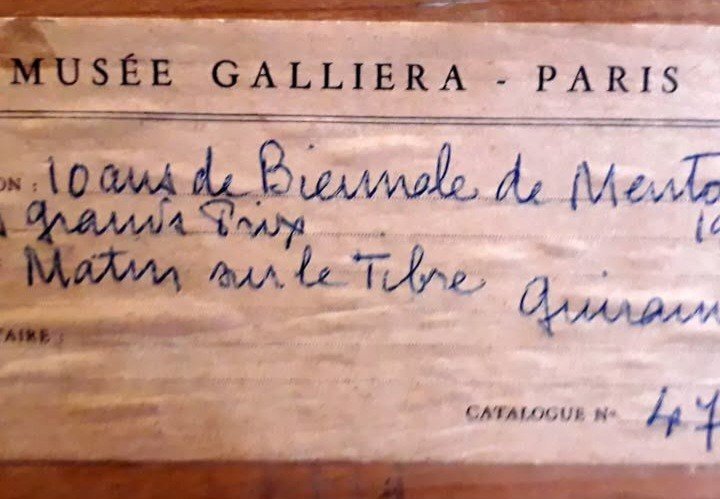 MUSÉE GALLIERA - PARIS
ON : 10 ans de Biennale de Mento
grands Prix 19
Matin sur le Tibre
Guiram
TAIRE :
CATALOGUE N° 47